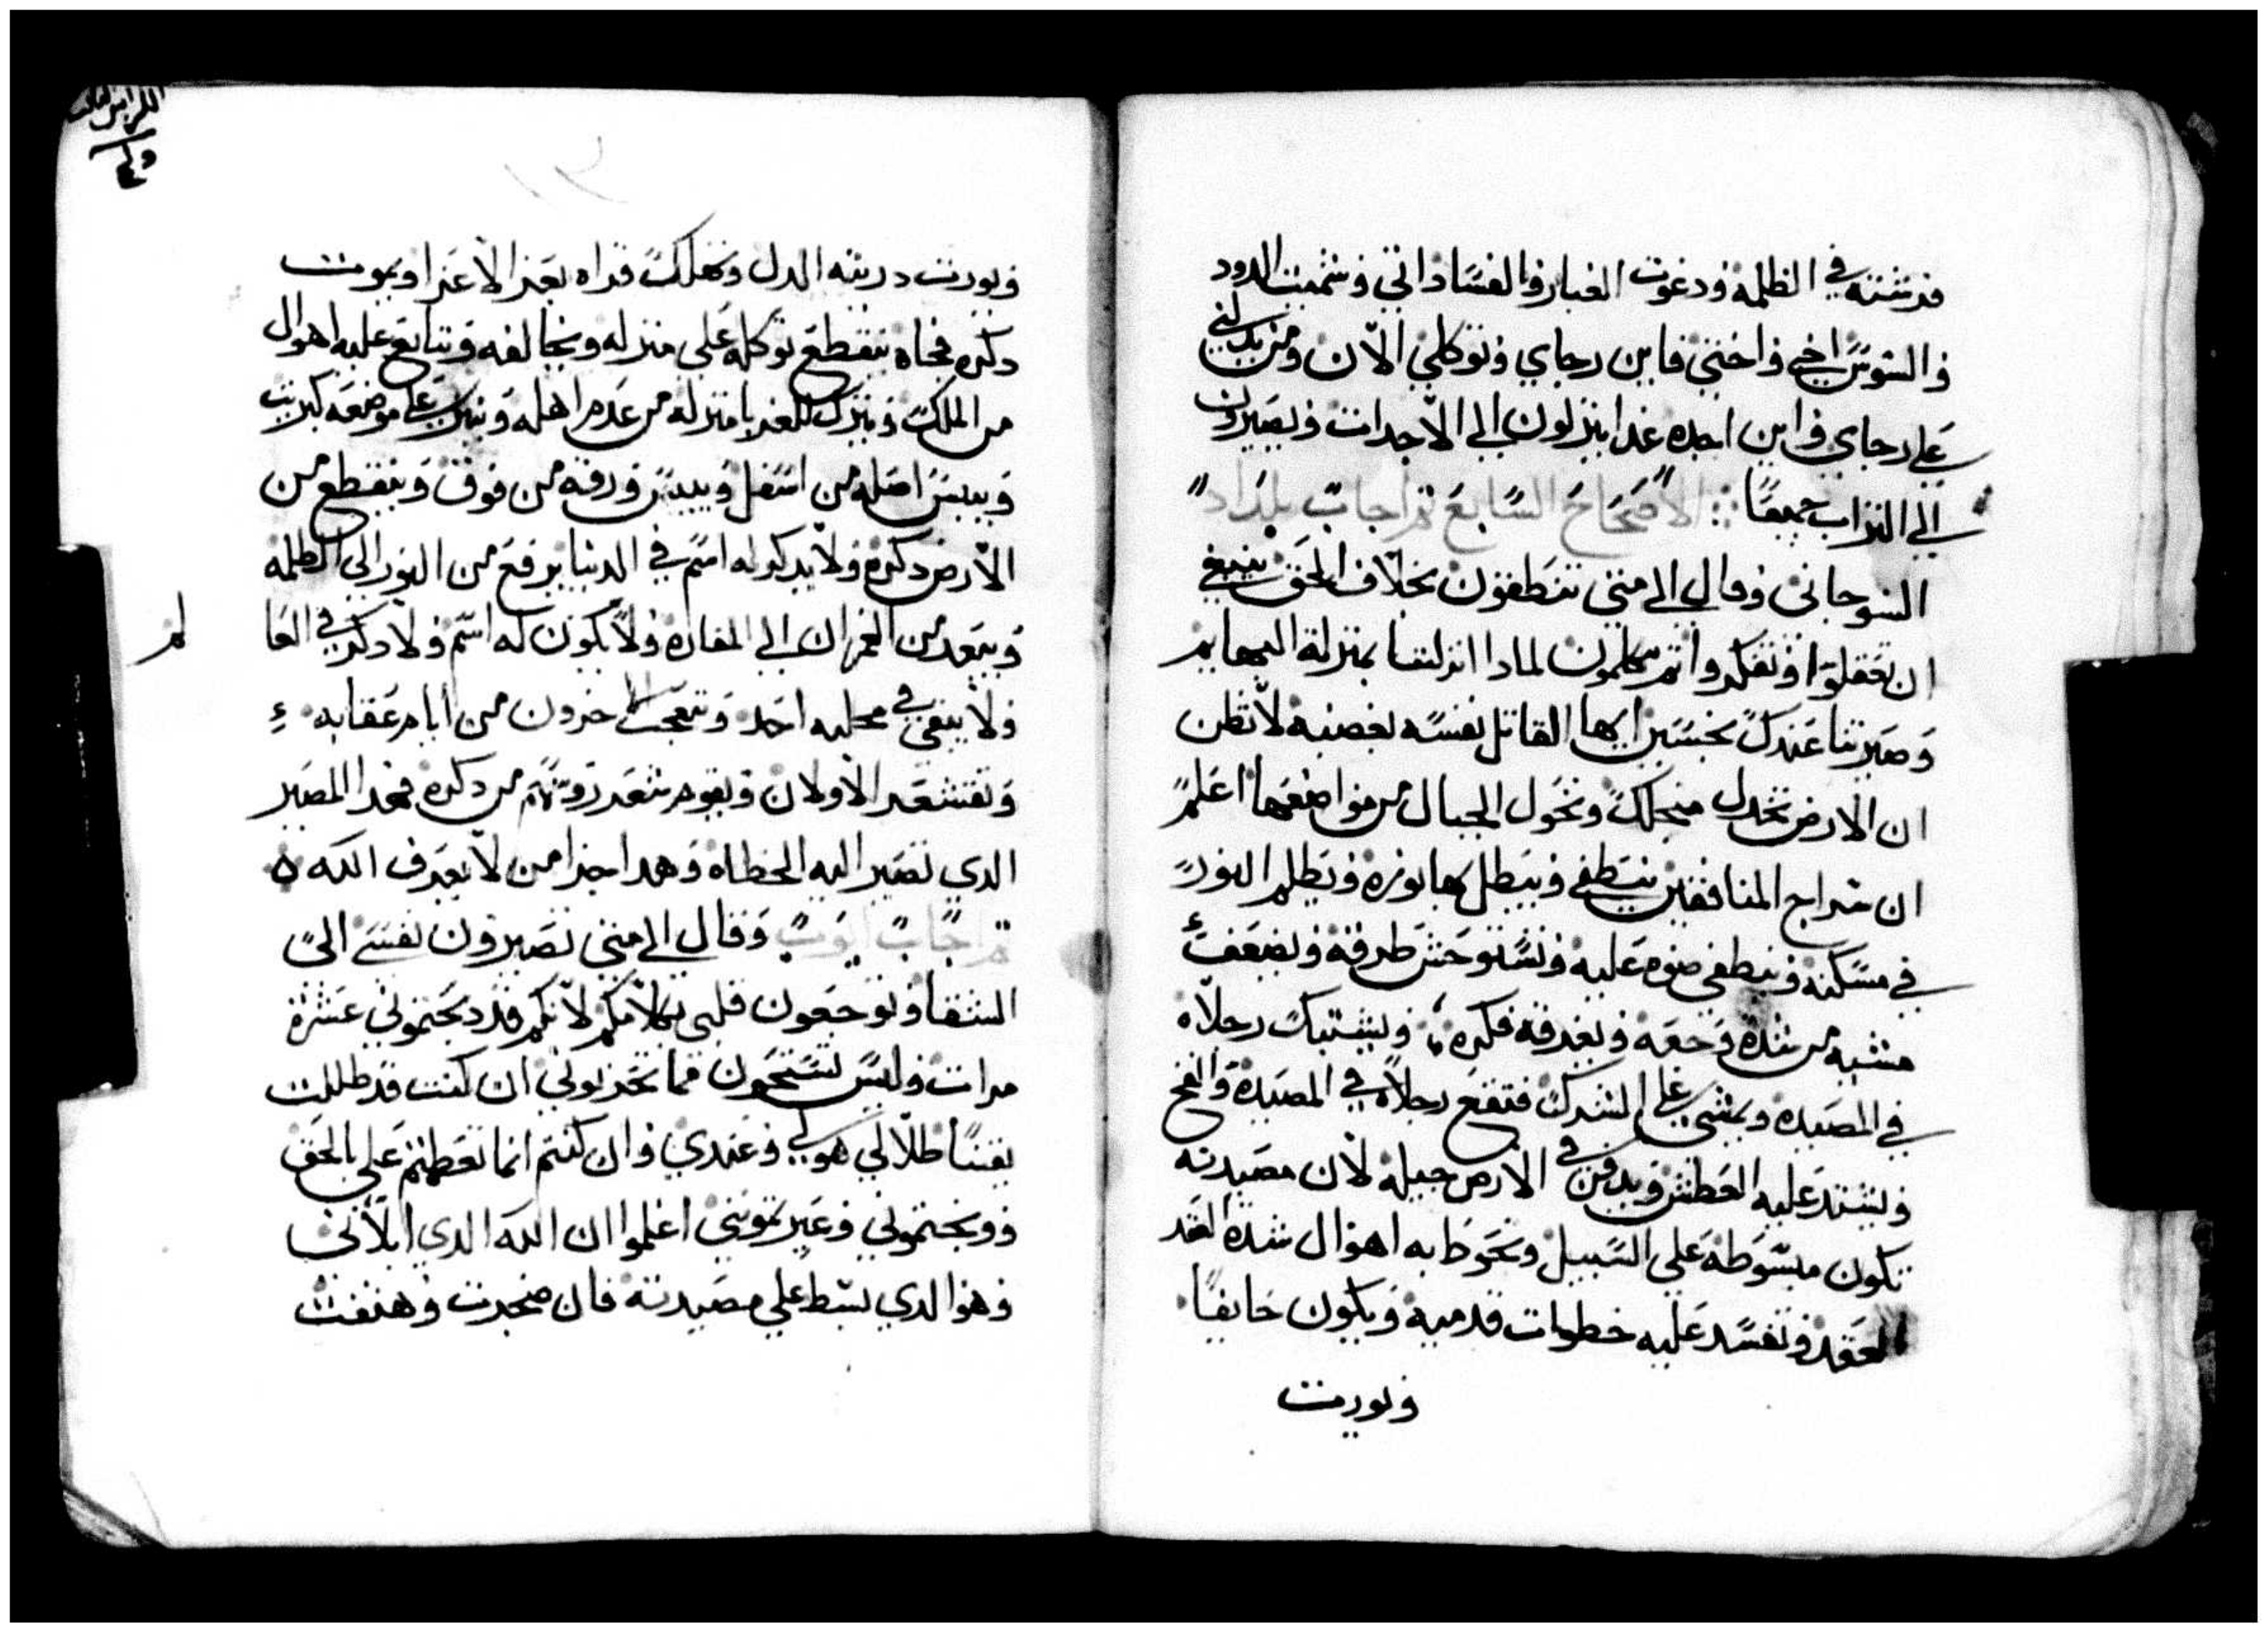 فرشته في الظلمه ودعوت الغبار والفساد ابي وسميت الدود
والسوس اخي واختي فاين رجاي وتوكلي الان ومن يدلني
علي رجاي واين اجده غدا ينزلون الي الاجدات ويصيرون
الي التراب جميعا الاصحاح السابع ثم اجاب بلداد
السوحاني وقال الي متي تنطقون بخلاف الحق ينبغي
ان تعقلوا وتفكروا ثم تتكلمون لمادا انزلتنا بمنزلة البهايم
وصيرتنا عندك نجسين ايها القاتل نفسه بغضبه لا تظن
ان الارض تخدل منجلك وتحول الجبال من مواضعها اعلم
ان سراج المنافقين ينطفي ويبطل بها نوره ويظلم النور
في مسكنه وينطفي ضوه عليه وتستوحش طرقه وتضعف
مشيه من شدة وجعه ويغرقه فكره ويشتبك رجلاه
في المصيده ويمشي علي الشرك فتقع رجلاه في المصيدة والفخ
ويشتد عليه العطش ويدفن في الارض حبله لان مصيدته
تكون مبسوطه علي السبيل وتحوط به اهوال شدة العقد
العقد وتفسد عليه خطوات قدميه ويكون خايفا
ويورت
ويورت دريته الدل وتهلك قراه بعز الاعزا ويموت
دكره فجاه ينقطع توكله علي منزله ويخالفه وتتابع عليه اهوال
من الملك ويترك للغربا منزله من عدم اهله ويترك علي موضعه كبريت
وييبس اصله من اسفل وييبس ورقه من فوق وينقطع من
الارض دكره ولا يدكر له اسم في الدنيا يرفع من النور الي الظلمه
ويبعد من العمران الي المفاره ولا يكون له اسم ولا دكر في العا
لم
ولا يبقي في محلته احد وتتعجب الاخرون من ايام عقابه
وتقشعر الاولان ويقوم شعر روسهم من دكره فهدا المصير
الدي تصير اليه الخطاه وهدا جزا من لا يعرف الله
ثم اجاب ايوب وقال الي متي تصيرون نفسي الي
الشقا وتوجعون قلبي بكلامكم لانكم قد وبختموني عشرة
مرات وليس تستحون مما تحزنوني ان كنت قد ظللت
يقينا ظلالي هو لي وعندي وان كنتم انما تعظمتم علي بالحق
ووبختموني وعيرتموني اعلموا ان الله الدي ابلاني
وهو الدي بسط علي مصيدته فان ضجرت وهتفت